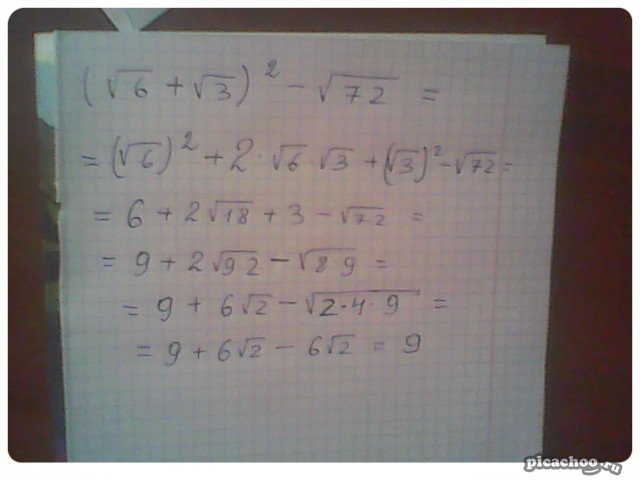 (√6 + √3)² − √72 =
= (√6)² + 2·√6·√3 + (√3)² − √72 =
= 6 + 2√18 + 3 − √72 =
= 9 + 2√9·2 − √8·9 =
= 9 + 6√2 − √2·4·9 =
= 9 + 6√2 − 6√2 = 9
picachoo.ru